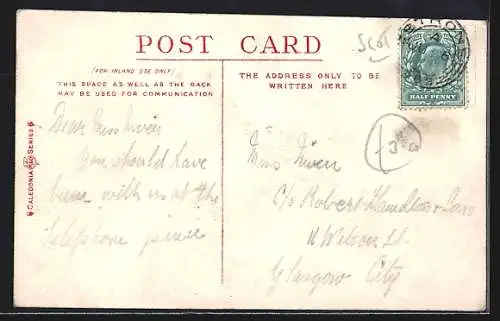 POST CARD
(FOR INLAND USE ONLY)
THIS SPACE AS WELL AS THE BACK
MAY BE USED FOR COMMUNICATION
THE ADDRESS ONLY TO BE
WRITTEN HERE
Scot
HALF PENNY
CALEDONIA SERIES
Dear Miss Niven
You should have
been with us at the
Telephone
Miss Niven
c/o Robert Hamilton & Sons
11 Wilson St.
Glasgow City
3